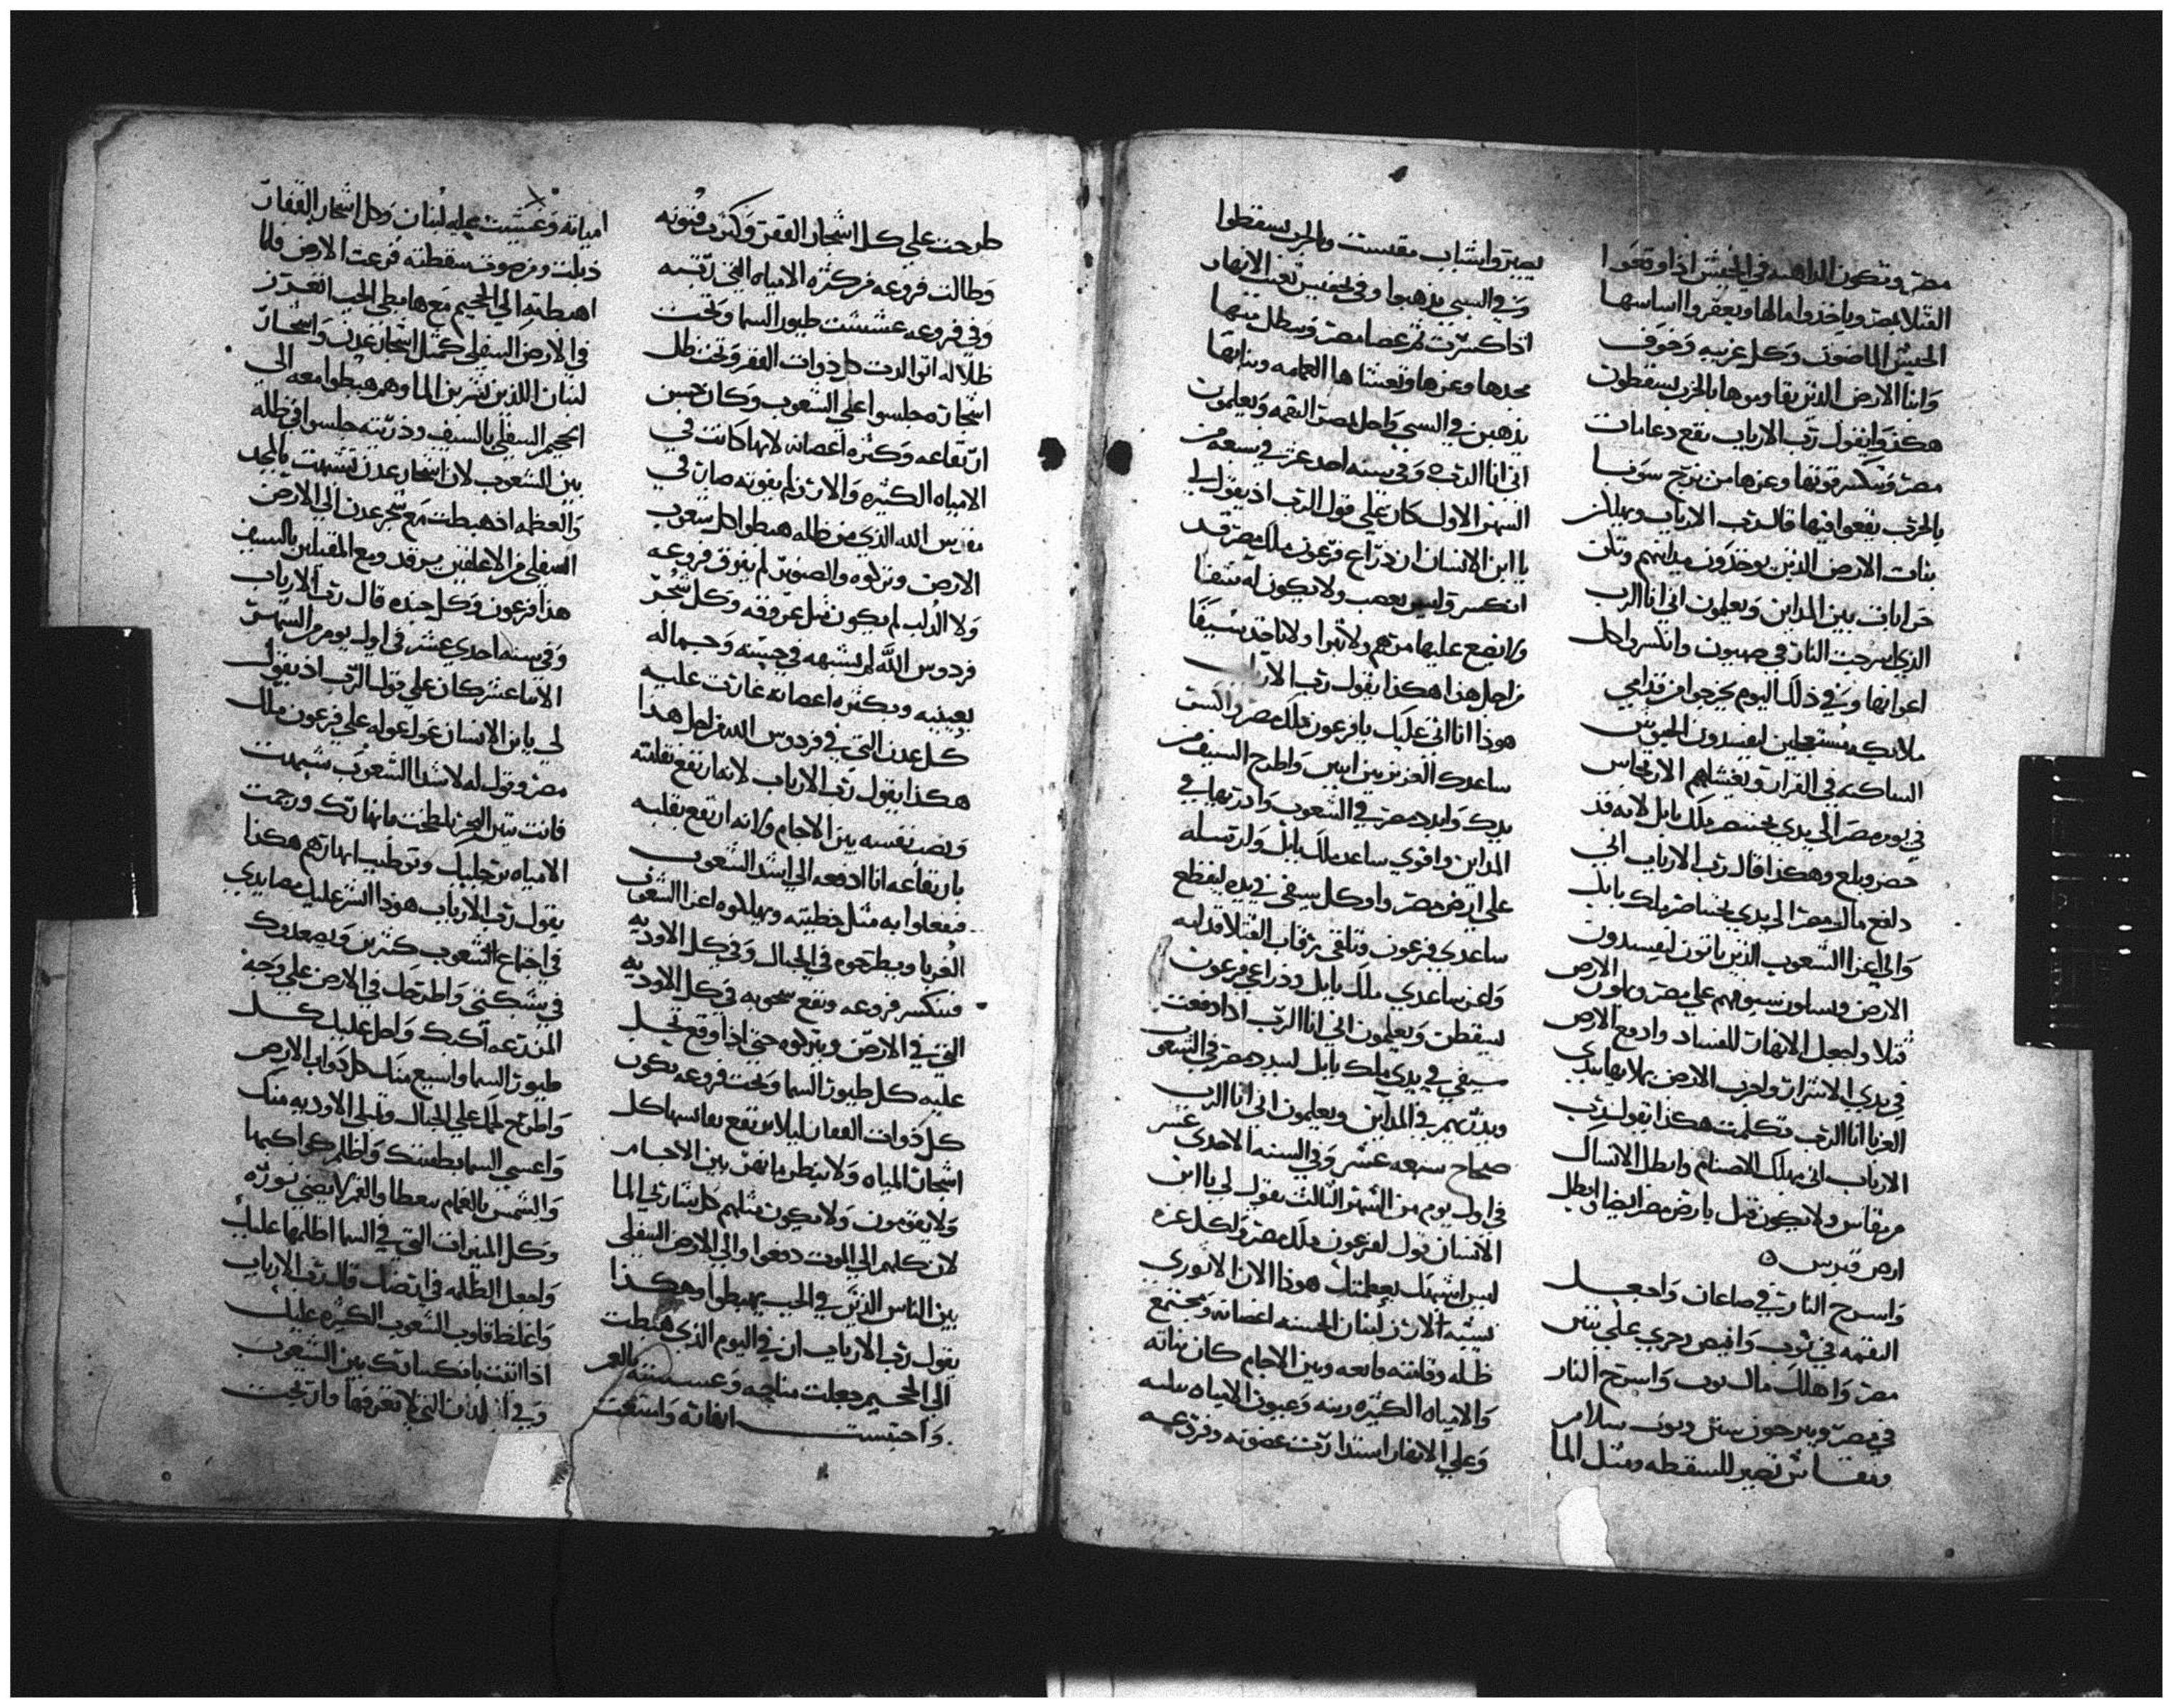 مصر وتكون الداهيه في الحبش اذا وقعوا
القتلا بمصر وياخدوا مالها ويعقروا اساسها
الحبش الماضون وكل عربيه وخوف
وابنا الارض الذين يقاوموها بالحرب يسقطون
هكذا يقول رب الارباب تقع دعامات
مصر وتنكسر قوتها وعزها من برج سونيا
بالحرب يقعوا فيها قال رب الارباب ويهلكن
بنات الارض الذين يوخدون مدايهم وتكن
خرابات بين المداين ويعلمون اني انا الرب
الذي اسرجت النار في صهيون وانكسروا كل
اعوانها وفي ذلك اليوم يخرجوا من قدامي
ملايكه مستعجلين ليفسدون الحبوش
الساكنه في القرار ويغشاهم الارتعاس
في يوم مصر الى يدي بختنصر ملك بابل لانه قد
حضر وبلغ وهكذا قال رب الارباب اني
دافع مال مصر الى يدي بختناصر ملك بابل
والى اعزا الشعوب الذين ياتون ليفسدون
الارض ويسلون سيوفهم على مصر ويملون الارض
قتلا واجعل الانهار للفساد وادفع الارض
في يدي الاشرار واخرب الارض بملايها بيدي
الغربا انا الرب تكلمت هكذا يقول رب
الارباب اني مهلك الاصنام وابطل الانسال
من نفاس ولا يكون قبل بارض مصر ايضا وابطل
ارض قبرس
واسرح النار في صاعان واجعل
النقمه في نوب وافيض رجزي على سين
مصر واهلك مال نوب واسرح النار
في مصر ويرجون سين ونوب سلام
ومفاس تصير للسقطه ومثل الما
يصيروا شباب مقست وبالحرب يسقطوا
وفي السبي يذهبوا وفي تحفيس تعنت الانهار
اذا كسرت ثم عصا مصر وبطل منها
مجدها وعزها وتعشاها الغمامه وبناتها
يذهبن في السبي واحل بمصر النقمه ويعلمون
اني انا الرب وفي سنه احد عشر في سبعه من
الشهر الاول كان علي قول الرب اذ يقول لي
يا ابن الانسان ان ذراع فرعون ملك مصر قد
انكسر وليس يعصب ولا يكون له شفا
ولا يضع عليها مرهم ولا تبرا ولا ياخد سيفا
من اجل هذا هكذا يقول رب الارباب
هوذا انا اتى عليك يا فرعون ملك مصر واكسر
ساعدك العزيز بين ايبين واطرح السيف من
يدك وابدد مصر في الشعوب وادريها في
المداين واقوي ساعد ملك بابل وارسله
على ارض مصر واوكل سيفي في يده ليقطع
ساعدي فرعون وتلقى رقاب القتلا قدامه
واعز ساعدي ملك بابل وذراعي فرعون
سيقطن ويعلمون اني انا الرب اذا دفعت
سيفي في يدي ملك بابل ليبدد مصر في الشعوب
ويذريهم في المداين ويعلمون اني انا الرب
صحاح سبعه عشر وفي السنه الاحدى عشر
في اول يوم من الشهر الثالث يقول لي يا ابن
الانسان قول لفرعون ملك مصر ولكل عزه
لمن اشبهتك بعظمتك هوذا الان الاثوري
يشبه ارز لبنان الحسنه اغصانه ويجتمع
ظله وقامته مانعه وبين الاجام كان بناته
والامياه الكثيره ربته وعيون الامياه
وعلى الانهار استدارت غصونه وفروعه
طرحت على كل اشجار القفر وكثرت فنونه
وطالت فروعه من كثرة الامياه التي ربته
وفي فروعه عششت طيور السما وتحت
ظلاله اتوالدت كل ذوات القفر وتحت ظل
اشجاره جلسوا على الشعوب وكان حسن
ارتفاعه وكثره اغصانه لانها كانت في
الامياه الكثيره والارز لم يفوته صار في
فردوس الله الذي من ظله هبطوا كل شعوب
الارض وتركوه والصنوبر لم تفوق فروعه
ولا الدلب لم يكون مثل عروقه وكل شجر
فردوس الله لم يشبهه في حبيبته وجماله
بعينيه وبكثره اعصانه غارت عليه
كل عدن التي في فردوس الله من اجل هذا
هكذا يقول رب الارباب لانه ارتفع بقامته
ونصب نفسه بين الاجام ولانه ارتفع بقلبه
بارتفاعه انا ادفعه الى اشد الشعوب
فيفعلوا به مثل خطيته ويهلكوه اعزا الشعوب
الغربا ويطرحوه في الجبال وفي كل الاوديه
فتنكسر فروعه وتقع شجوبه في كل الاوديه
التي في الارض ويتركوه حتى اذا وقع تحل
عليه كل طيور السما وتحت فروعه يكون
كل ذوات القفار ليلا يرتفع بقامتها كل
اشجار المياه ولا ينظر مانعهن بين الاجام
ولا يقومون ولا يكون مثلهم كل شاربي الما
لان كلهم الى الموت دفعوا والى الارض السفلى
بين الناس الذين في الجب يهبطوا وهكذا
يقول رب الارباب ان في اليوم الذي هبطت
الى الجحيم جعلت مناحه وعسيته بالعمر
واحتبست انهاره وامتنعت
امياهه وغشيت عليه لبنان وكل اشجار القفار
ذبلت ومن صوت سقطته فزعت الارض فلما
اهبطته الى الجحيم مع هابطي الجب اتعزز
في الارض السفلى كمثل اشجار عدن واشجار
لبنان اللذين نشربن الما وهم هبطوا معه الى
الجحيم السفلي بالسيف وذريته جلسوا في ظله
بين الشعوب لان اشجار عدن تشبهت بالمجد
والعظمه اذ هبطت مع شجر عدن الى الارض
السفلى من الاغلفين يرقد ومع المقتلين بالسيف
هذا فرعون وكل جنده قال رب الارباب
وفي سنه احدي عشر في اول يوم من الشهر
الاثنا عشر كان علي قول الرب اذ يقول
لي يا بن الانسان عول عوله على فرعون ملك
مصر وقول له لاشد الشعوب شبهت
فانت تنين البحر بلطخت بانهارك ورجمت
الامياه برجليك وتوطيب انهارهم هكذا
يقول رب الارباب هوذا انشر عليك مصايدي
في اجتماع الشعوب كثيرين ويصعدوك
في شبكتي واطرحك في الارض علي وجه
المزرعه اكبك واحل عليك كل
طيور السما واشبع منك كل دواب الارض
واطرح لحمك علي الجبال وتملى الاوديه منك
واغشى السما بطفيتك واظلم كواكبها
والشمس بالغمام تتغطا والقمر لا يضي نوره
وكل المنيرات التي في السما اظلمها عليك
واجعل الظلمه في ارضك قال رب الارباب
واغلظ قلوب الشعوب الكثيره عليك
اذا اتتت بانكسارتك بين الشعوب
وفي المدن التي لا تعرفها وارتجت